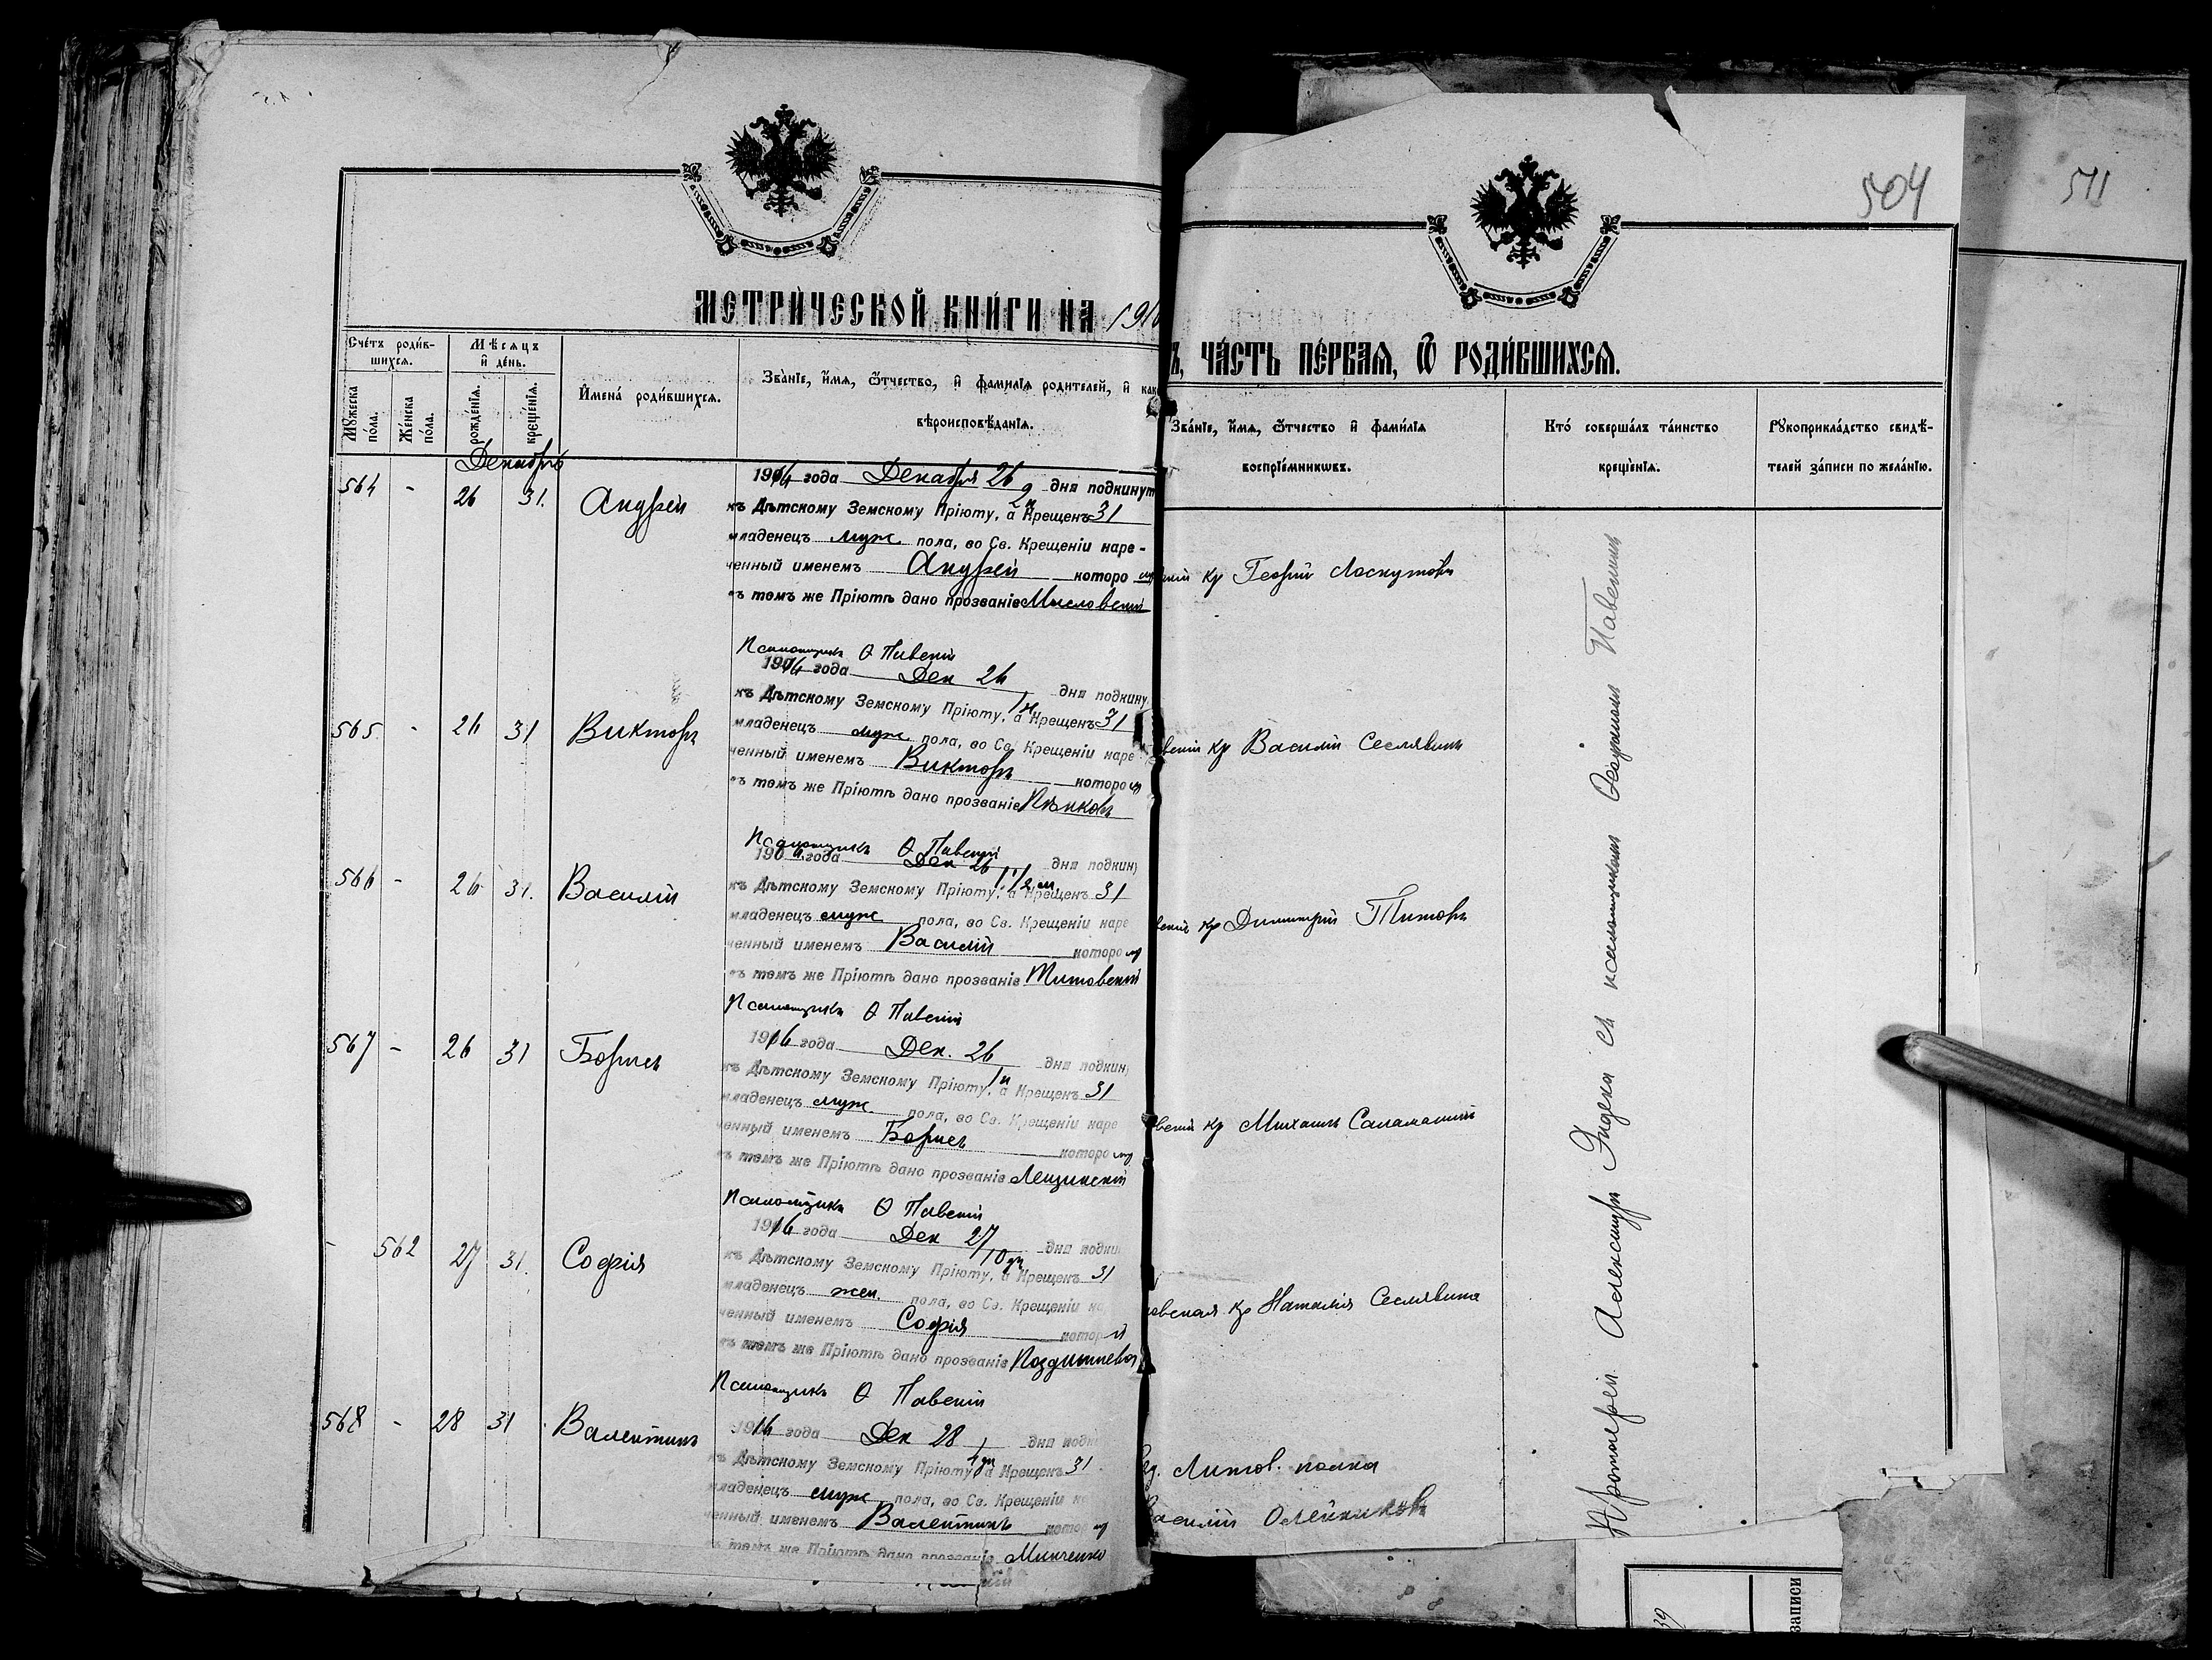 504
511
МЕТРИЧЕСКОЙ КНИГИ НА 191
Ъ, ЧАСТЬ ПЕРВАЯ, Ѿ РОДИВШИХСЯ.
Счетъ родив-
шихся.
Мѣсяцъ
и день.
Мужеска
пола.
Женска
пола.
рожденія.
крещенія.
Имена родившихся.
Званіе, имя, отчество, и фамилія родителей, и как
вѣроисповѣданія.
Званіе, имя, отчество и фамилія
воспріемниковъ.
Кто совершалъ таинство
крещенія.
Рукоприкладство свидѣ-
телей записи по желанію.
Декабрь
564 - 26 31. Андрей
1916 года Декабря 26 дня подкинут
къ Дѣтскому Земскому Пріюту, а Крещенъ 31
младенецъ муж пола, во Св. Крещеніи наре-
ченный именемъ Андрей которо
ъ томъ же Пріютѣ дано прозваніе
кр Георгій Лоскутовъ
Псаломщикъ Ѳ Павскій
565 - 26 31 Викторъ
1916 года Дек 26 дня подкину
къ Дѣтскому Земскому Пріюту, а Крещенъ 31
младенецъ муж. пола, во Св. Крещеніи наре
ченный именемъ Викторъ которо
ъ томъ же Пріютѣ дано прозваніе
кр Василій Сеслявинъ
Псаломщикъ Ѳ Павскій
566 - 26 31. Василій
года Дек 26 дня подкин
къ Дѣтскому Земскому Пріюту, а Крещенъ 31
младенецъ муж пола, во Св. Крещеніи наре
ченный именемъ Василій которо
ъ томъ же Пріютѣ дано прозваніе Титовскій
кр Димитрій Титовъ
Псаломщикъ Ѳ Павскій
567 - 26 31 Борисъ
1916 года Дек. 26 дня подкин
къ Дѣтскому Земскому Пріюту, а Крещенъ 31
младенецъ муж. пола, во Св. Крещеніи наре
ченный именемъ Борисъ которо
ъ томъ же Пріютѣ дано прозваніе Лещинскій
кр Михаилъ
Псаломщикъ Ѳ Павскій
- 562 27 31. Софія
1916 года Дек 27 дня подки
къ Дѣтскому Земскому Пріюту, а Крещенъ 31
младенецъ жен. пола, во Св. Крещеніи на
ченный именемъ Софія котор й
ъ томъ же Пріютѣ дано прозваніе
овская кр Наталія Сеслявина
Псаломщикъ Ѳ Павскій
568 - 28 31 Валентинъ
1916 года Дек 28 дня подки
къ Дѣтскому Земскому Пріюту а Крещенъ 31
младенецъ муж пола, во Св. Крещеніи на
ченный именемъ Валентинъ котор
ъ томъ же Пріютѣ дано прозваніе Минченко
Литов. полка
Василій Олейниковъ
Протоіерей Александръ Эндека съ псаломщикомъ Ѳеодоромъ Павскимъ
39
записи